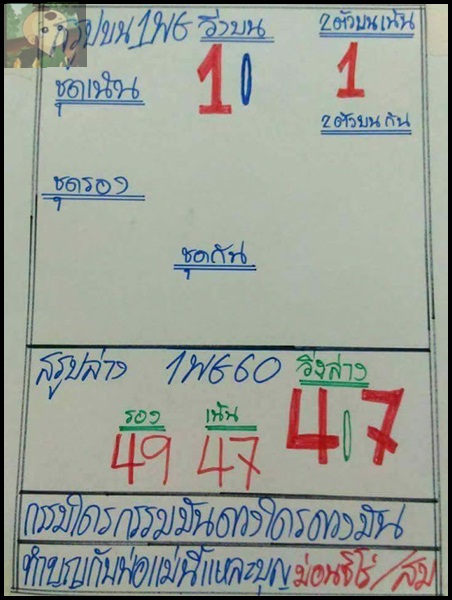 สรุปบน 1พ6 วิ่งบน 2ตัวบนเน้น
ชุดเน้น 10 1
2ตัวบน กัน
ชุดรอง
ชุดกัน
สรุปล่าง 1พ660 วิ่งล่าง
รอง เน้น 4 0 7
49 47
กรรมใครกรรมมันดวงใครดวงมัน
ทำบุญกับพ่อแม่นี่แหละบุญ